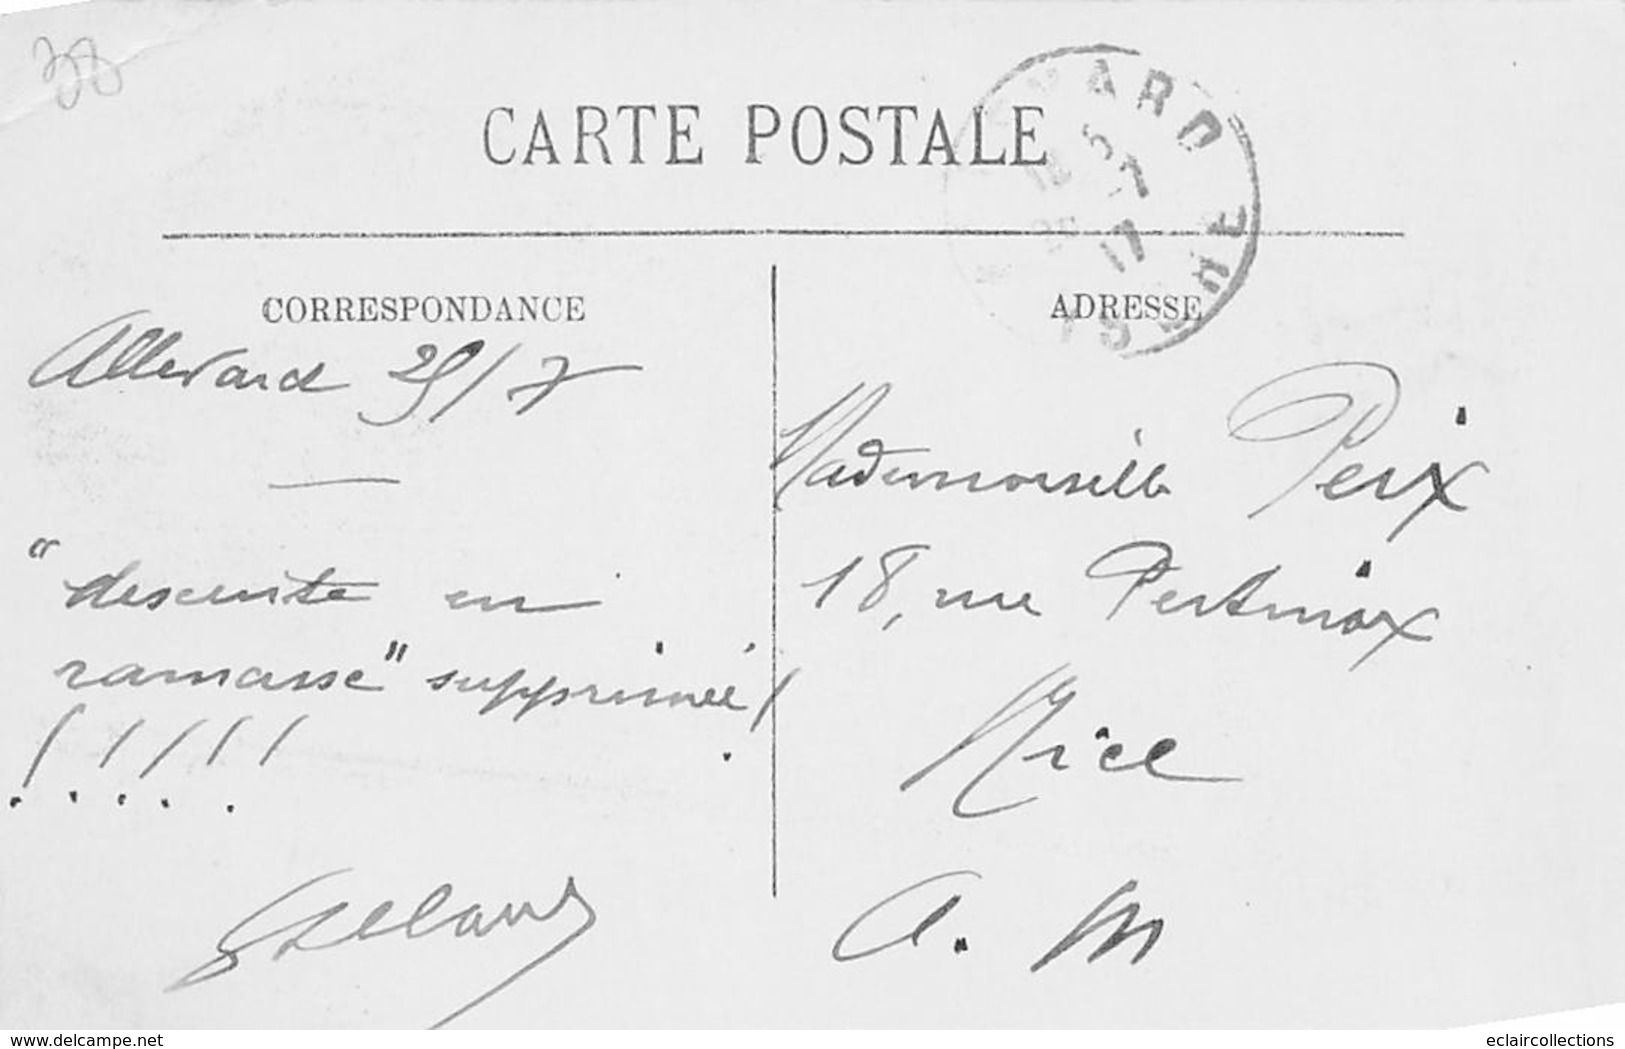 38
CARTE POSTALE
CORRESPONDANCE
ADRESSE
Allevard 25/7
"descente en
ramasse" supprimée!
!!!!!
Mademoiselle Peix
18, rue Pertinax
Nice
A. M
www.delcampe.net
eclaircollections